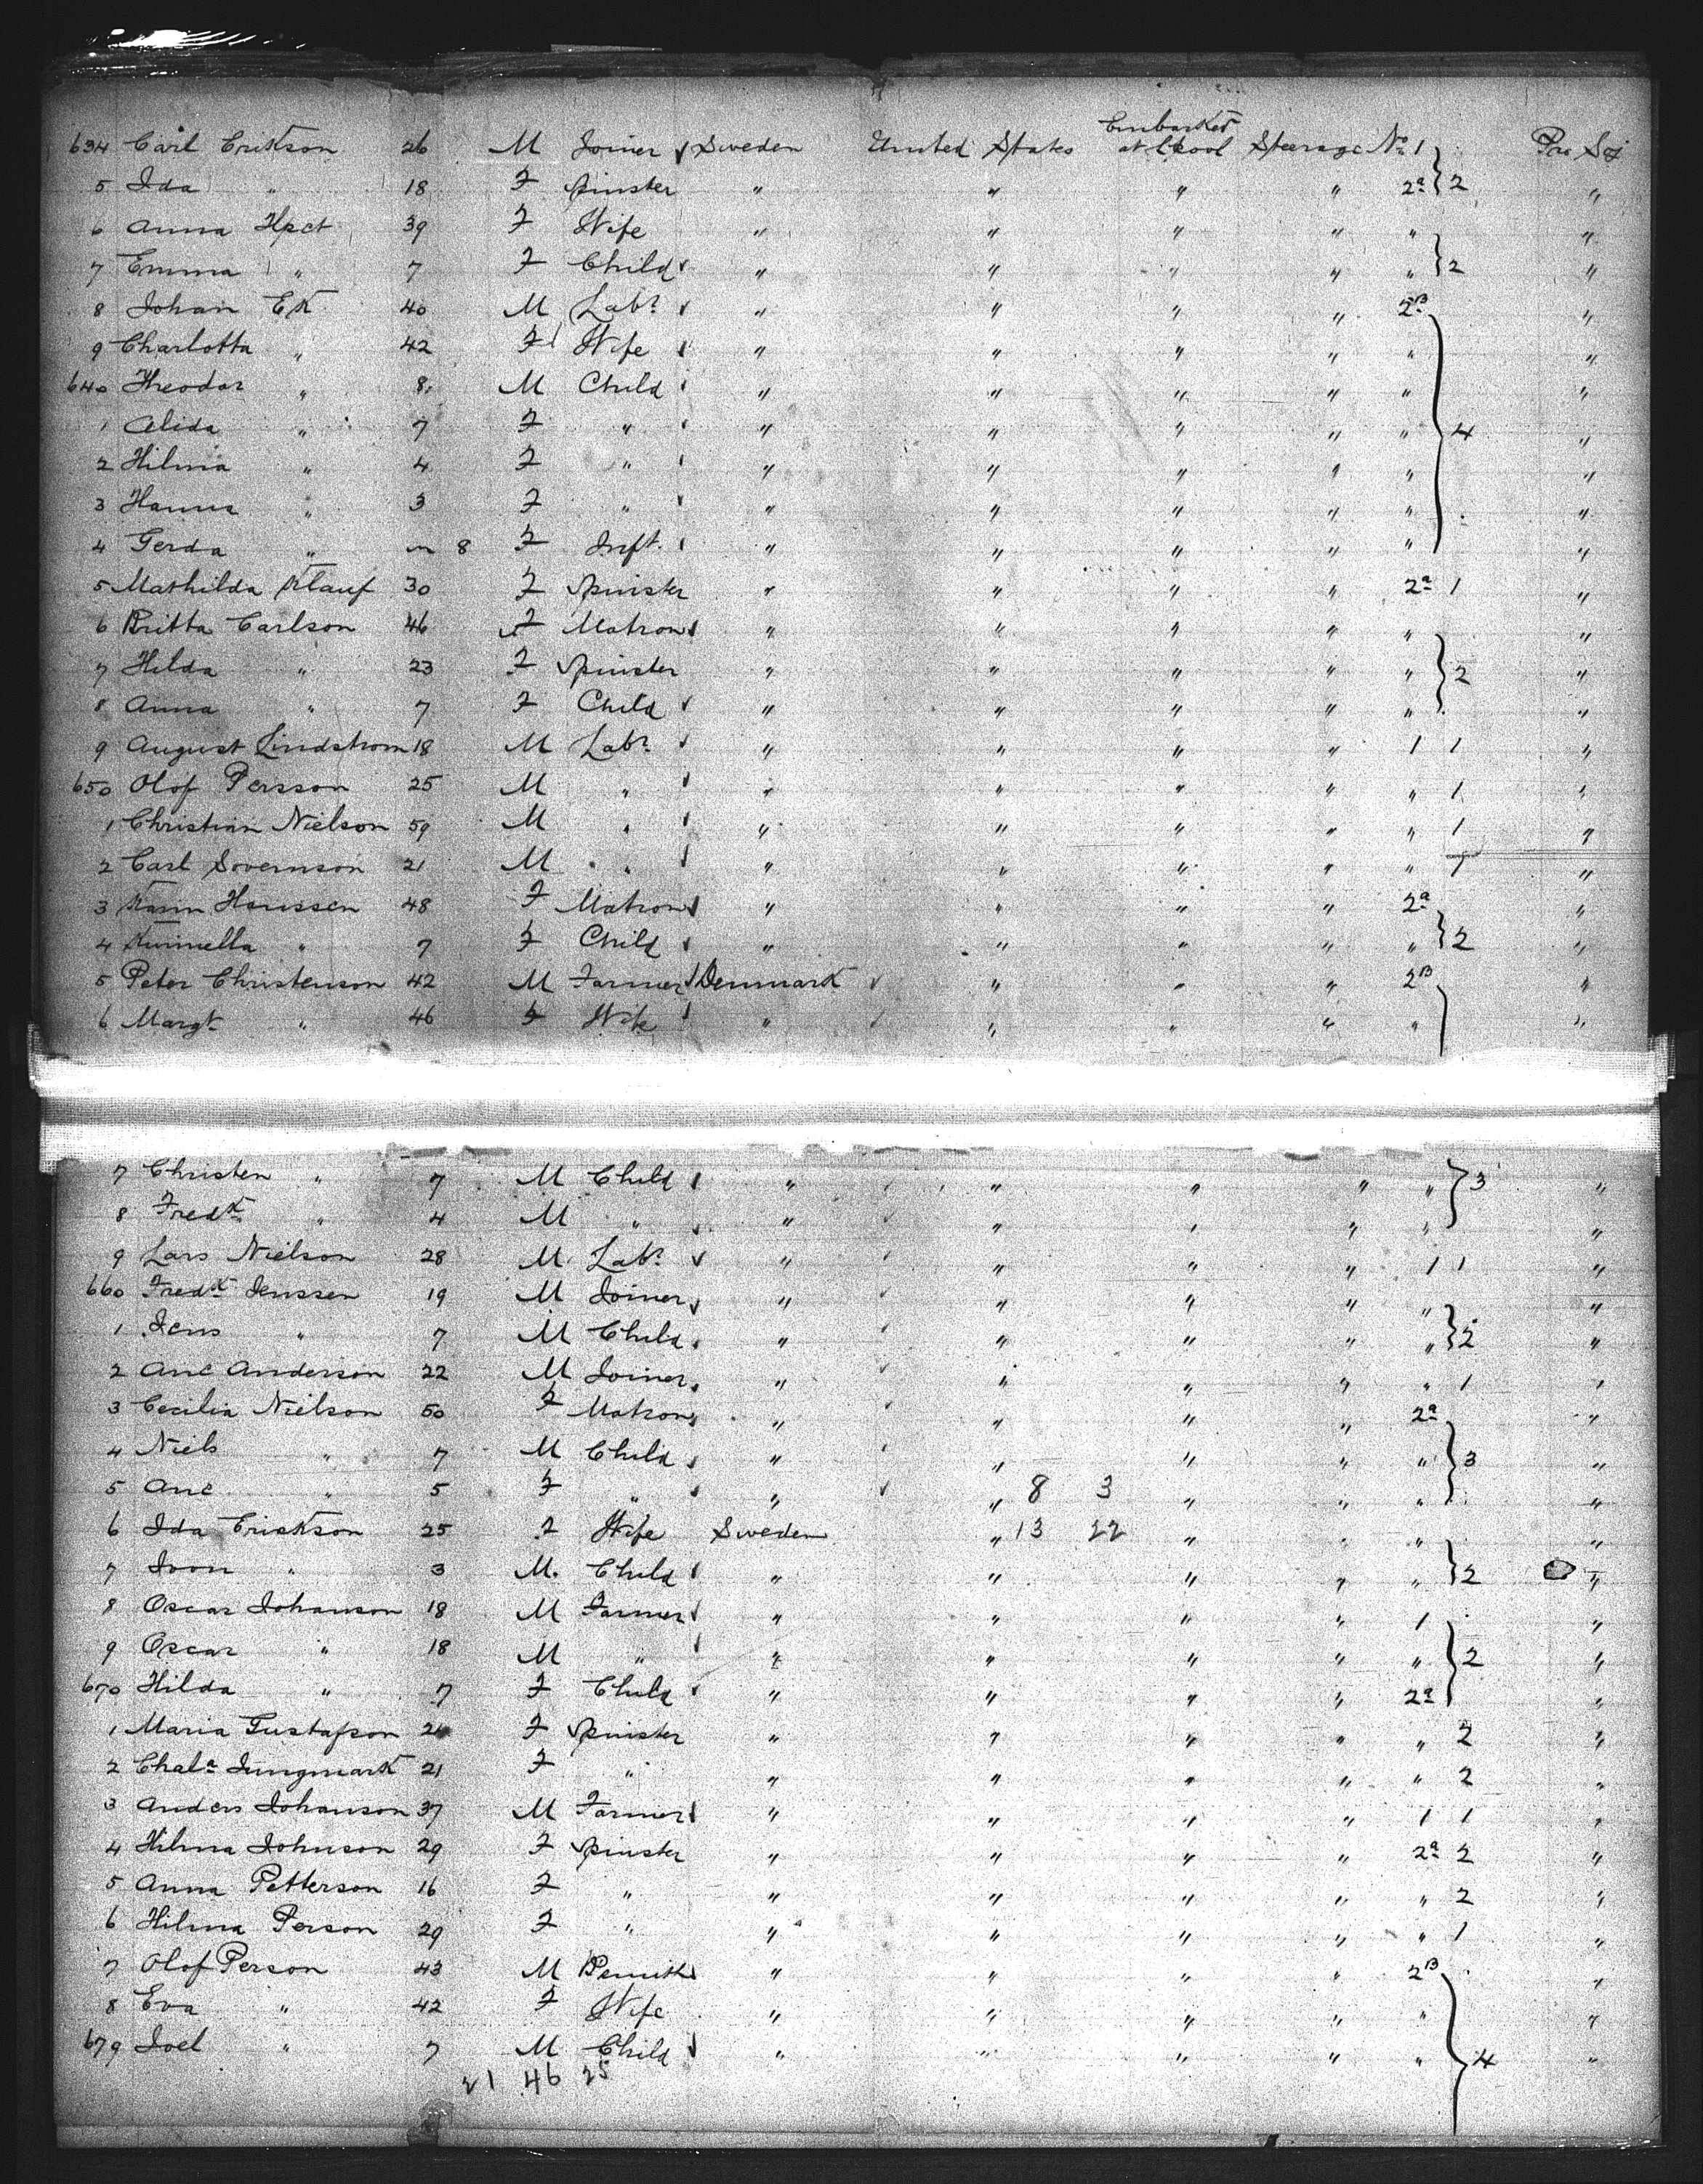 634 Carl Erikson 26 M Joiner Sweden United States Embarked at L'pool Steerage No 1 } Pro Soj
5 Ida " 18 F Spinster " " " " 2a } 2 "
6 Anna 39 F Wife " " " " " "
7 Emma " 7 F Child " " " " " } 2 "
8 Johan Ek 40 M Labr " " " " 2B "
9 Charlotta " 42 F Wife " " " " " "
640 Theodor " 8 M Child " " " " " "
1 Alida " 7 F " " " " " " } 4 "
2 Hilma " 4 F " " " " " " "
3 Hanna " 3 F " " " " " " "
4 Gerda " m 8 F Inft. " " " " " "
5 Mathilda 30 F Spinster " " " " 2a 1 "
6 Britta Carlson 46 F Matron " " " " " "
7 Hilda " 23 F Spinster " " " " " } 2 "
8 Anna " 7 F Child " " " " " "
9 August Lindstrom 18 M Labr " " " " 1 1 "
650 Olof Persson 25 M " " " " " " 1 "
1 Christian Nielson 59 M " " " " " " 1 "
2 Carl Sovernson 21 M " " " " " " 1 "
3 Karin Hanssen 48 F Matron " " " " 2a "
4 " 7 F Child " " " " " } 2 "
5 Peter Christenson 42 M Farmer Denmark " " " 2B "
6 Margt " 46 F Wife " " " " " "
7 Christen " 7 M Child " " " " " } 3 "
8 Fredk " 4 M " " " " " " "
9 Lars Nielson 28 M Labr " " " " 1 1 "
660 Fredk Jenssen 19 M Joiner " " " " " "
1 Jens " 7 M Child " " " " " } 2 "
2 Ane Anderson 22 M Joiner " " " " " 1 "
3 Cecilia Nielson 50 F Matron " " " " 2a "
4 Niels " 7 M Child " " " " " } 3 "
5 Ane " 5 F " " " 8 3 " " " "
6 Ida Erickson 25 F Wife Sweden " 13 22 " " " "
7 Ivon " 3 M Child " " " " " } 2 "
8 Oscar Johanson 18 M Farmer " " " " 1 "
9 Oscar " 18 M " " " " " " } 2 "
670 Hilda " 7 F Child " " " " 2a "
1 Maria Gustafson F Spinster " " " " " 2 "
2 Chala Jungmark 21 F " " " " " " 2 "
3 Anders Johanson 37 M Farmer " " " " 1 1 "
4 Hilma Johnson 29 F Spinster " " " " 2a 2 "
5 Anna Petterson 16 F " " " " " " 2 "
6 Hilma Person 29 F " " " " " " 1 "
7 Olof Person 43 M " " " " 2B "
8 Eva " 42 F Wife " " " " " "
679 Joel " 7 M Child " " " " " } 4 "
21 46 25